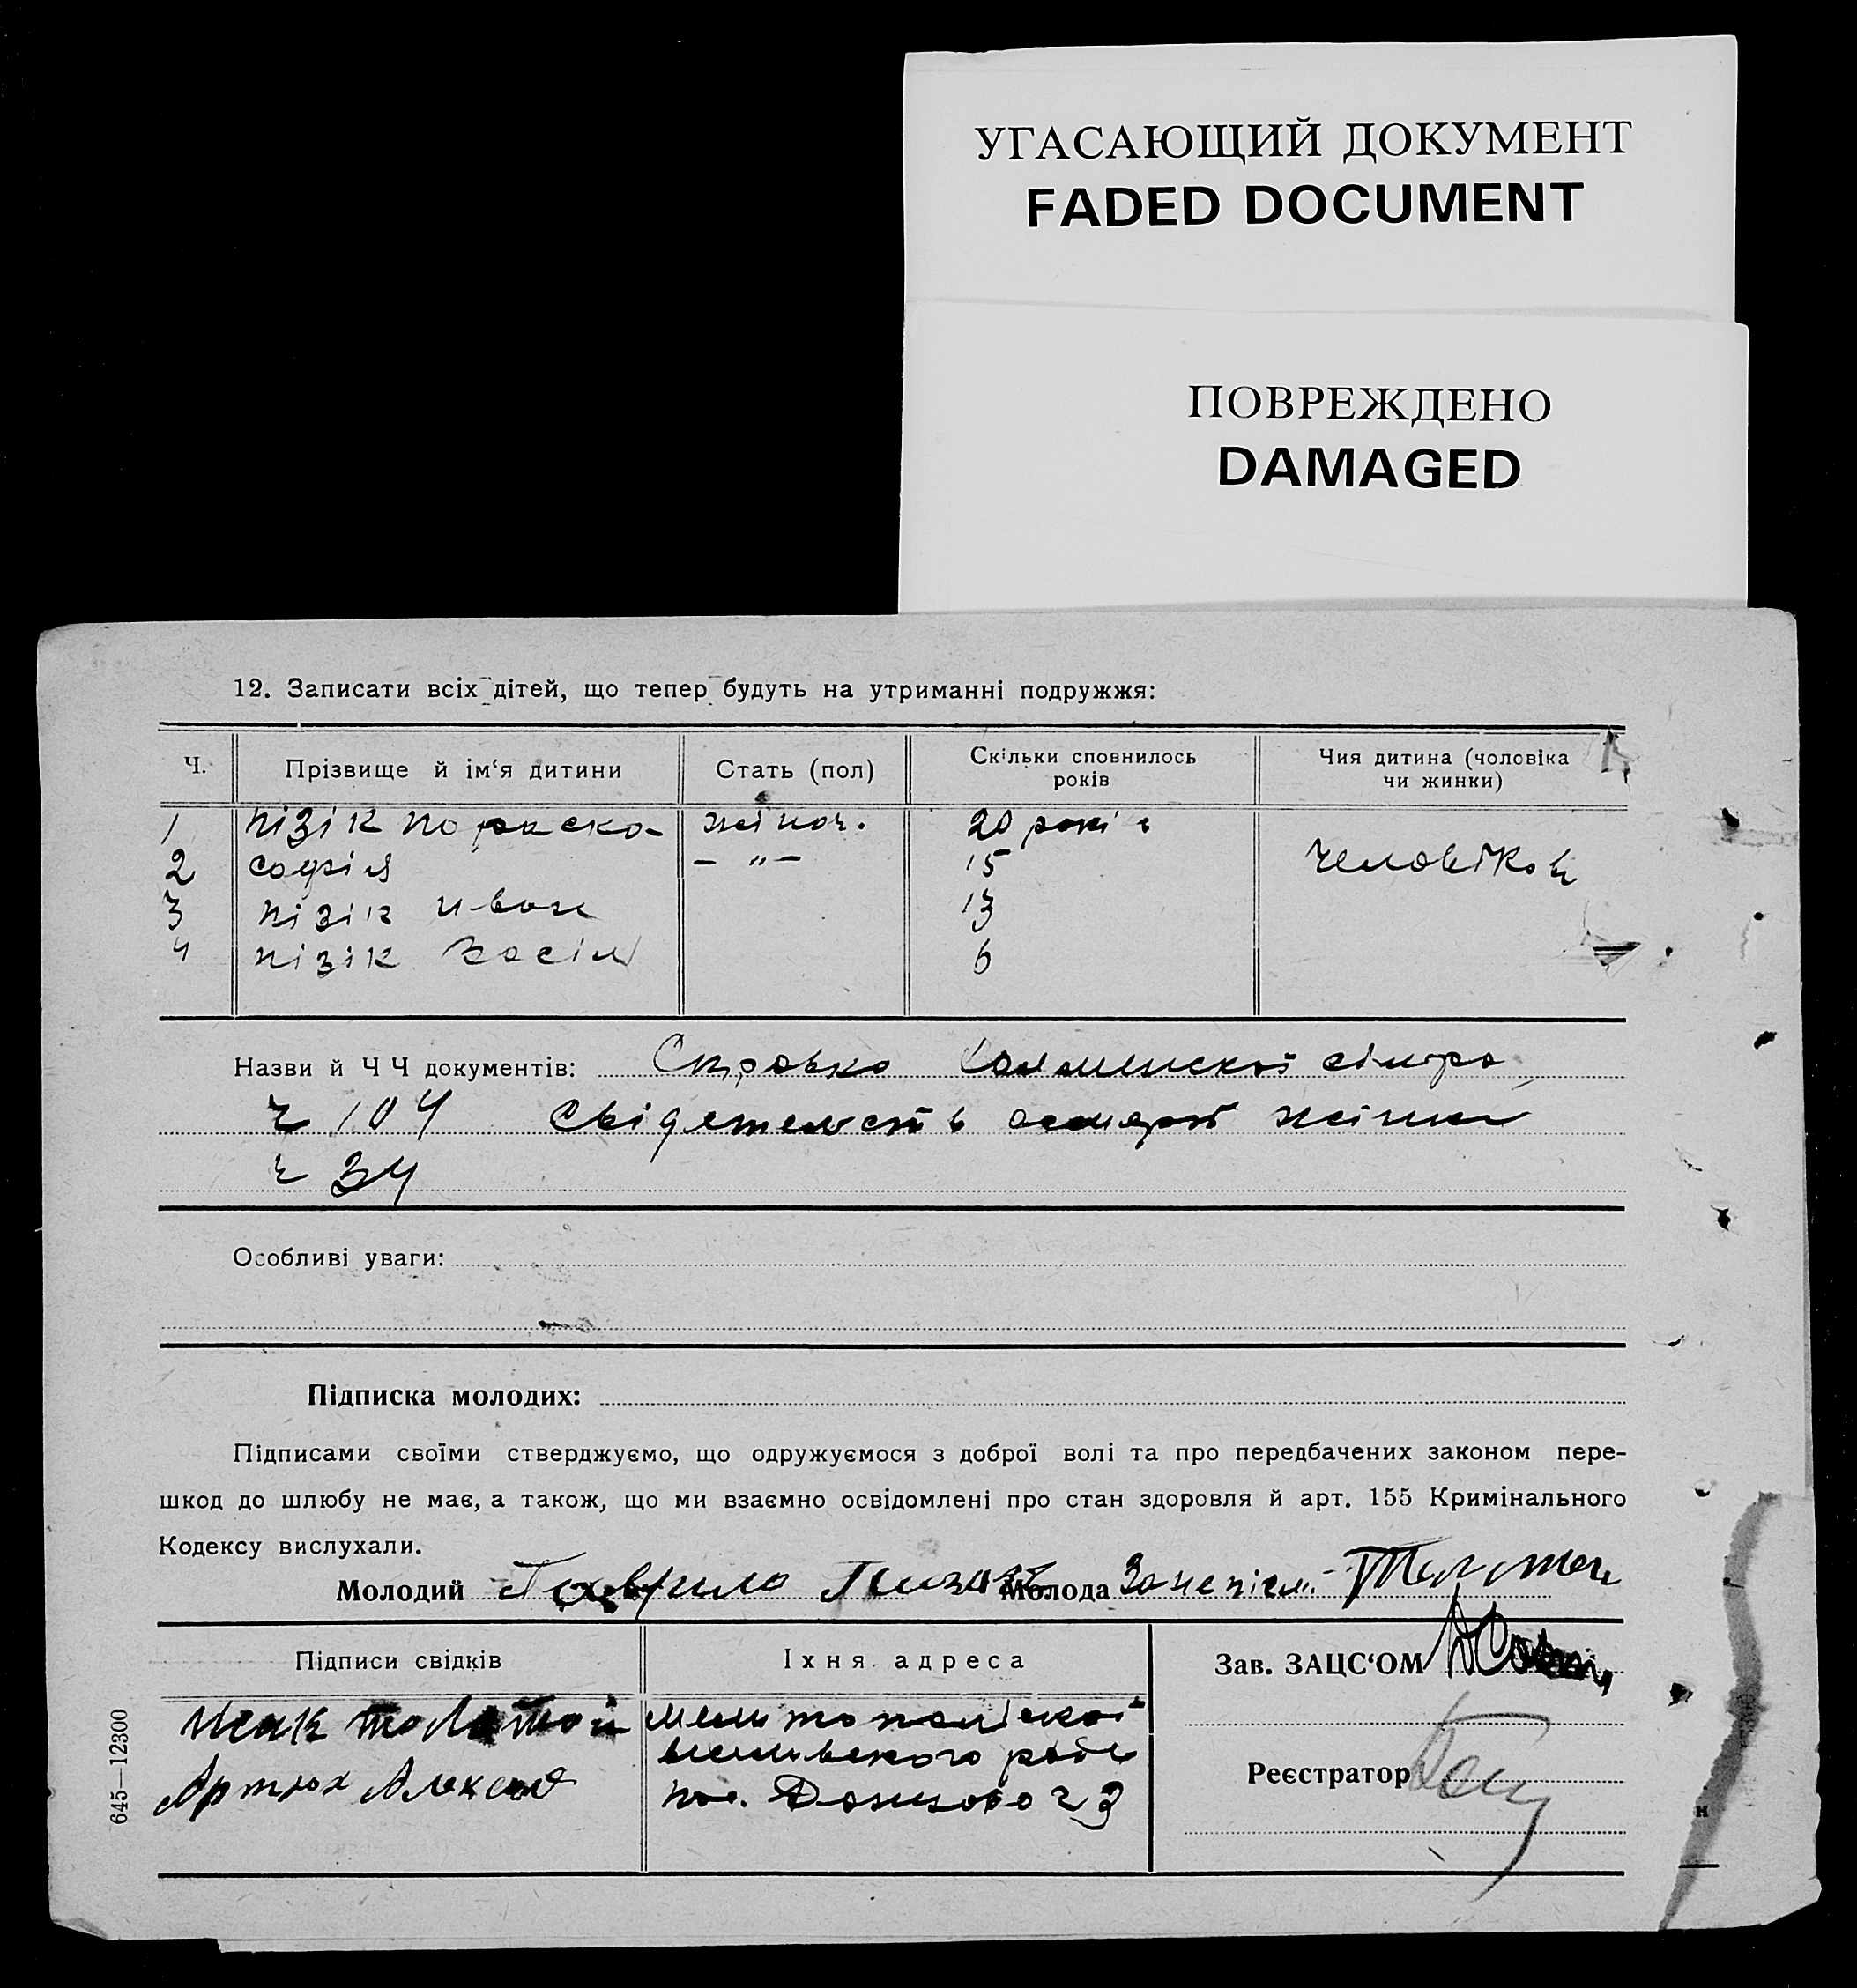 УГАСАЮЩИЙ ДОКУМЕНТ
FADED DOCUMENT
ПОВРЕЖДЕНО
DAMAGED
12. Записати всіх дітей, що тепер будуть на утриманні подружжя:
Ч. Прізвище й ім‘я дитини Стать (пол) Скільки сповнилось років Чия дитина (чоловіка чи жинки)
1 пізік параска жіноч. 20 років
2 софія – „ – 15 человіков
3 пізік иван 13
4 пізік 6
Назви й Ч Ч документів: Справка
ч 104 свідетельств жінки
ч 34
Особливі уваги:
Підписка молодих:
Підписами своїми стверджуємо, що одружуємося з доброї волі та про передбачених законом пере-
шкод до шлюбу не має, а також, що ми взаємно освідомлені про стан здоровля й арт. 155 Кримінального
Кодексу вислухали.
Молодий Гаврило Молода
Підписи свідків Їхня адреса Зав. ЗАЦС‘ОМ
Артюх Алексе
ч 3 Реєстратор
645—12300